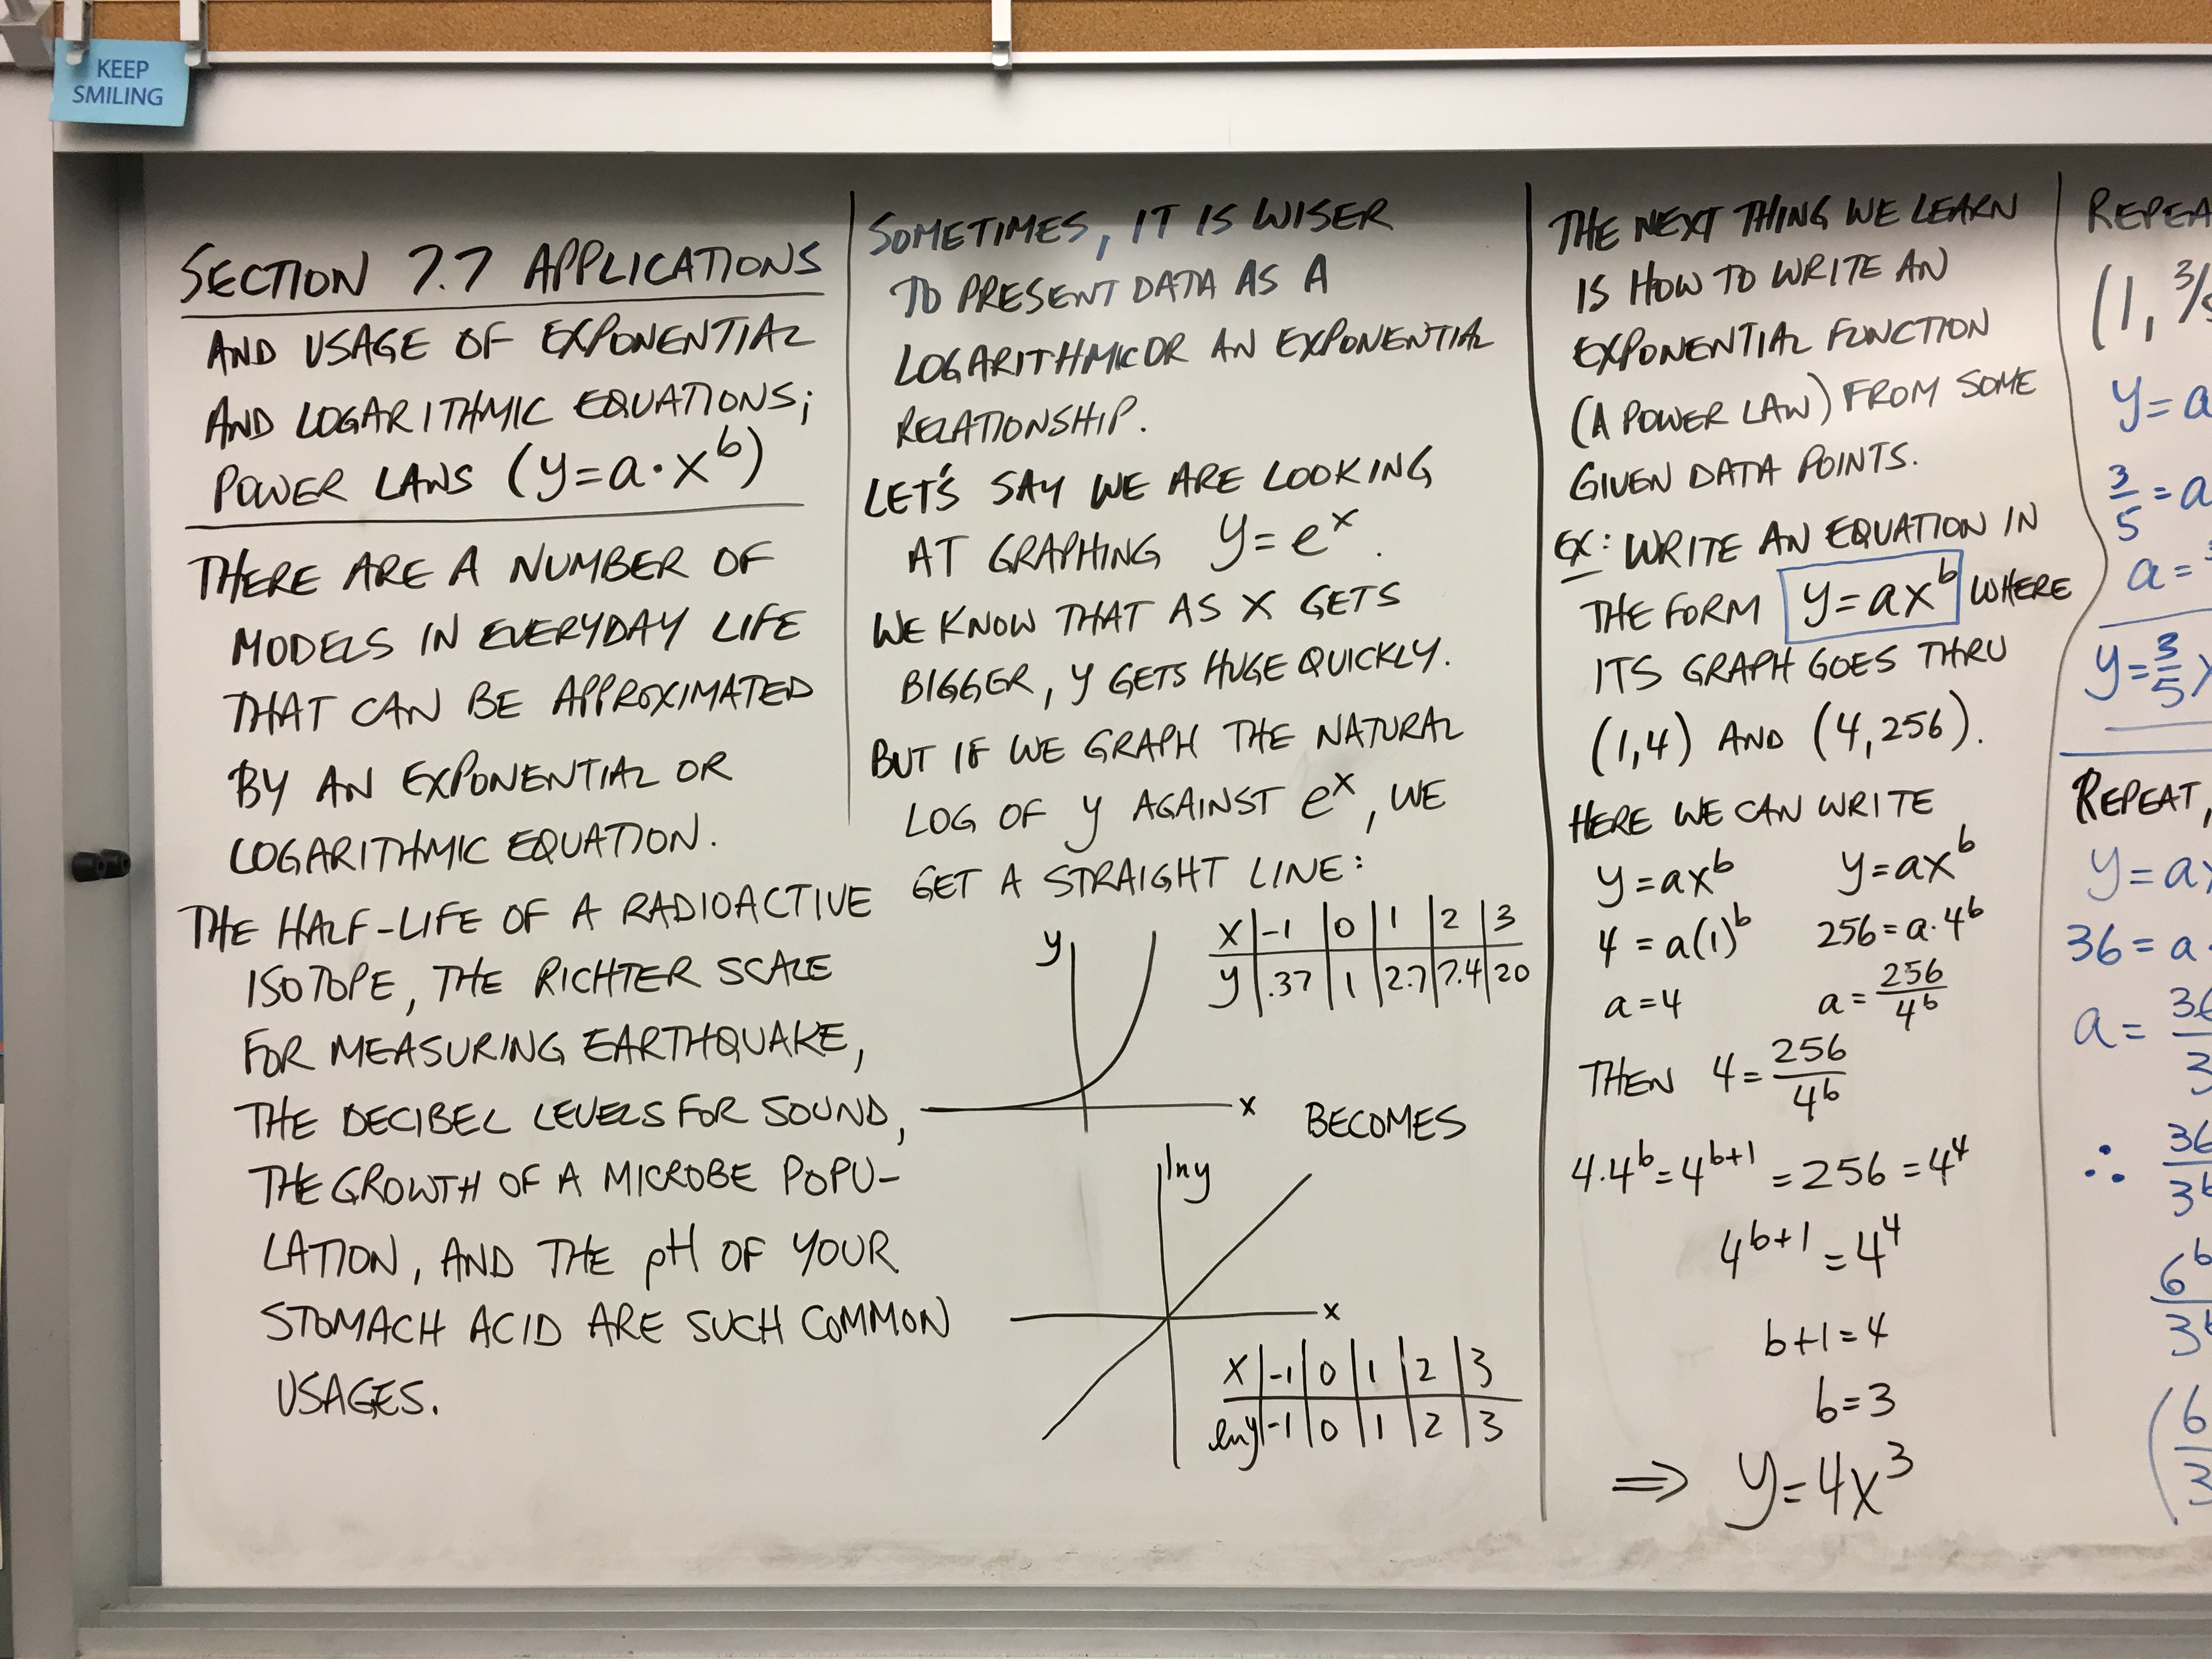 KEEP
SMILING
SECTION 7.7 APPLICATIONS
AND USAGE OF EXPONENTIAL
AND LOGARITHMIC EQUATIONS;
POWER LAWS (y=a·x^b)
THERE ARE A NUMBER OF
MODELS IN EVERYDAY LIFE
THAT CAN BE APPROXIMATED
BY AN EXPONENTIAL OR
LOGARITHMIC EQUATION.
THE HALF-LIFE OF A RADIOACTIVE
ISOTOPE, THE RICHTER SCALE
FOR MEASURING EARTHQUAKE,
THE DECIBEL LEVELS FOR SOUND,
THE GROWTH OF A MICROBE POPU-
LATION, AND THE pH OF YOUR
STOMACH ACID ARE SUCH COMMON
USAGES.
SOMETIMES, IT IS WISER
TO PRESENT DATA AS A
LOGARITHMIC OR AN EXPONENTIAL
RELATIONSHIP.
LET'S SAY WE ARE LOOKING
AT GRAPHING y=e^x.
WE KNOW THAT AS X GETS
BIGGER, y GETS HUGE QUICKLY.
BUT IF WE GRAPH THE NATURAL
LOG OF y AGAINST e^x, WE
GET A STRAIGHT LINE:
y
x
X -1 0 1 2 3
y .37 1 2.7 7.4 20
BECOMES
ln y
x
X -1 0 1 2 3
ln y -1 0 1 2 3
THE NEXT THING WE LEARN
IS HOW TO WRITE AN
EXPONENTIAL FUNCTION
(A POWER LAW) FROM SOME
GIVEN DATA POINTS.
EX: WRITE AN EQUATION IN
THE FORM y=ax^b WHERE
ITS GRAPH GOES THRU
(1,4) AND (4,256).
HERE WE CAN WRITE
y=ax^b y=ax^b
4=a(1)^b 256=a·4^b
a=4 a=256/4^b
THEN 4=256/4^b
4·4^b=4^(b+1)=256=4^4
4^(b+1)=4^4
b+1=4
b=3
⇒ y=4x^3
(1, 3/
y=a
3/5=a
a=
y=3/5
REPEAT,
y=a
36=a
a=
∴
6^b